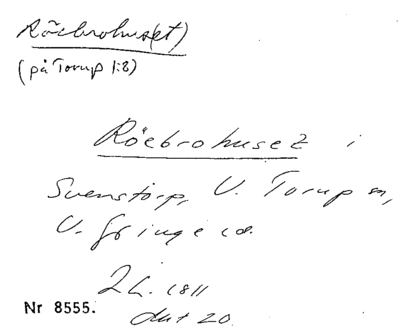 Röebrohus(et)
(på Torup 1:8)
Röebrohuset i
Svenstorp, V. Torup sn,
V. Göinge hd.
L. 1811
Nr 8555.
20.